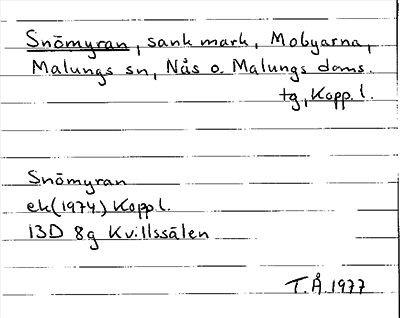 Snömyran, sank mark, Mobyarna,
Malungs sn, Nås o. Malungs doms.
tg, Kopp. l.
Snömyran
ek (1974) Kopp l.
13D 8g Kvillssälen
T.Å 1977